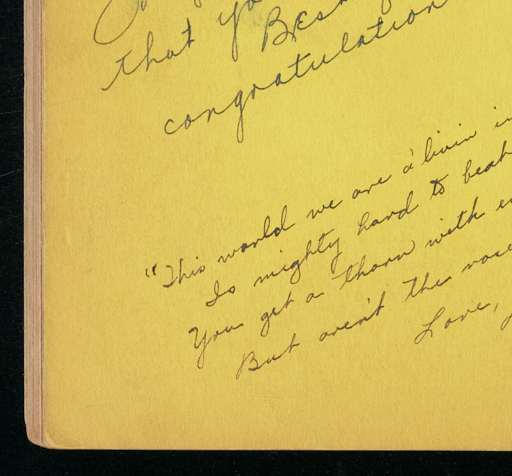 that yo
Best
congratulation
"This world we are a'livin in
Is mighty hard to beat
You get a thorn with e
But aren't the rose
Love,